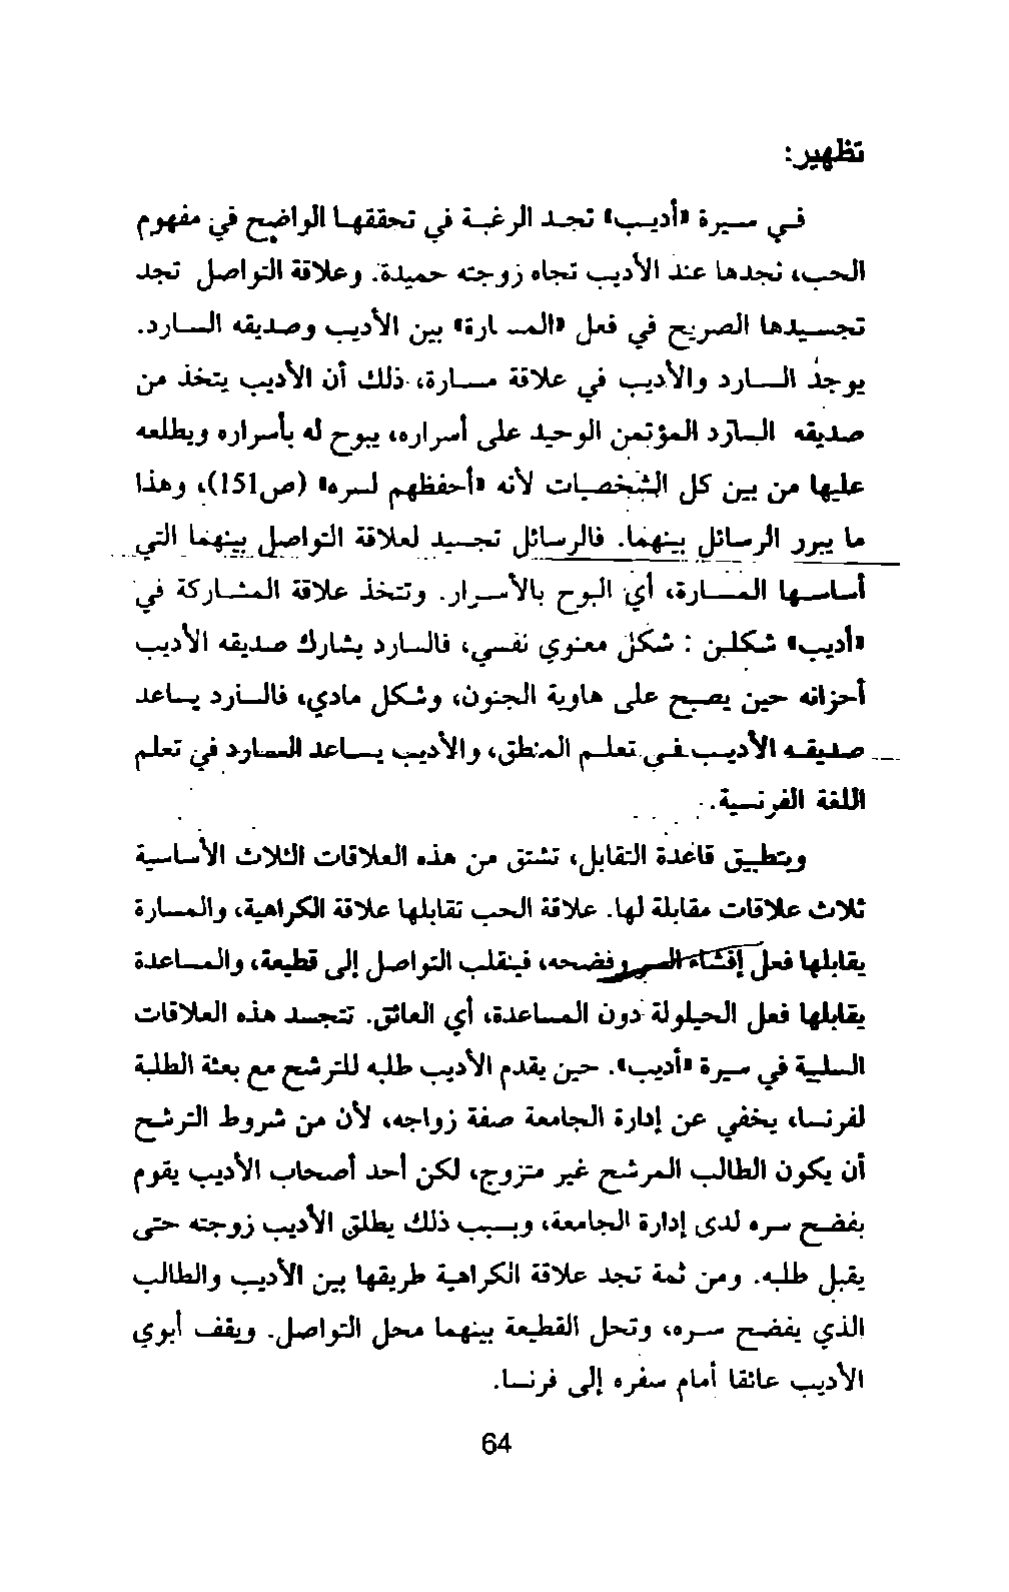 تظهير:
في سيرة «أديب» تجد الرغبة في تحققها الواضح في مفهوم
الحب، نجدها عند الأديب تجاه زوجته حميدة. وعلاقة التواصل تجد
تجسيدها الصريح في فعل «المسارة» بين الأديب وصديقه السارد.
يوجدُ السارد والأديب في علاقة مسارة، ذلك أن الأديب يتخذ من
صديقه السارد المؤتمن الوحيد على أسراره، يبوح له بأسراره ويطلعه
عليها من بين كل الشخصيات لأنه «أحفظهم لسره» (ص151)، وهذا
ما يبرر الرسائل بينهما. فالرسائل تجسيد لعلاقة التواصل بينهما التي
أساسها المسارة، أي البوح بالأسرار. وتتخذ علاقة المشاركة في
«أديب» شكلين : شكل معنوي نفسي، فالسارد يشارك صديقه الأديب
أحزانه حين يصبح على هاوية الجنون، وشكل مادي، فالسارد يساعد
صديقه الأديب في تعلم المنطق، والأديب يساعد السارد في تعلم
اللغة الفرنسية.
وبتطبيق قاعدة التقابل، تشتق من هذه العلاقات الثلاث الأساسية
ثلاث علاقات مقابلة لها. علاقة الحب تقابلها علاقة الكراهية، والمسارة
يقابلها فعل إفشاء السر وفضحه، فينقلب التواصل إلى قطيعة، والمساعدة
يقابلها فعل الحيلولة دون المساعدة، أي العائق. تتجسد هذه العلاقات
السلبية في سيرة «أديب». حين يقدم الأديب طلبه للترشح مع بعثة الطلبة
لفرنسا، يخفي عن إدارة الجامعة صفة زواجه، لأن من شروط الترشح
أن يكون الطالب المرشح غير متزوج، لكن أحد أصحاب الأديب يقوم
بفضح سره لدى إدارة الجامعة، وبسبب ذلك يطلق الأديب زوجته حتى
يقبل طلبه. ومن ثمة تجد علاقة الكراهية طريقها بين الأديب والطالب
الذي يفضح سره، وتحل القطيعة بينهما محل التواصل. ويقف أبوي
الأديب عائقا أمام سفره إلى فرنسا.
64